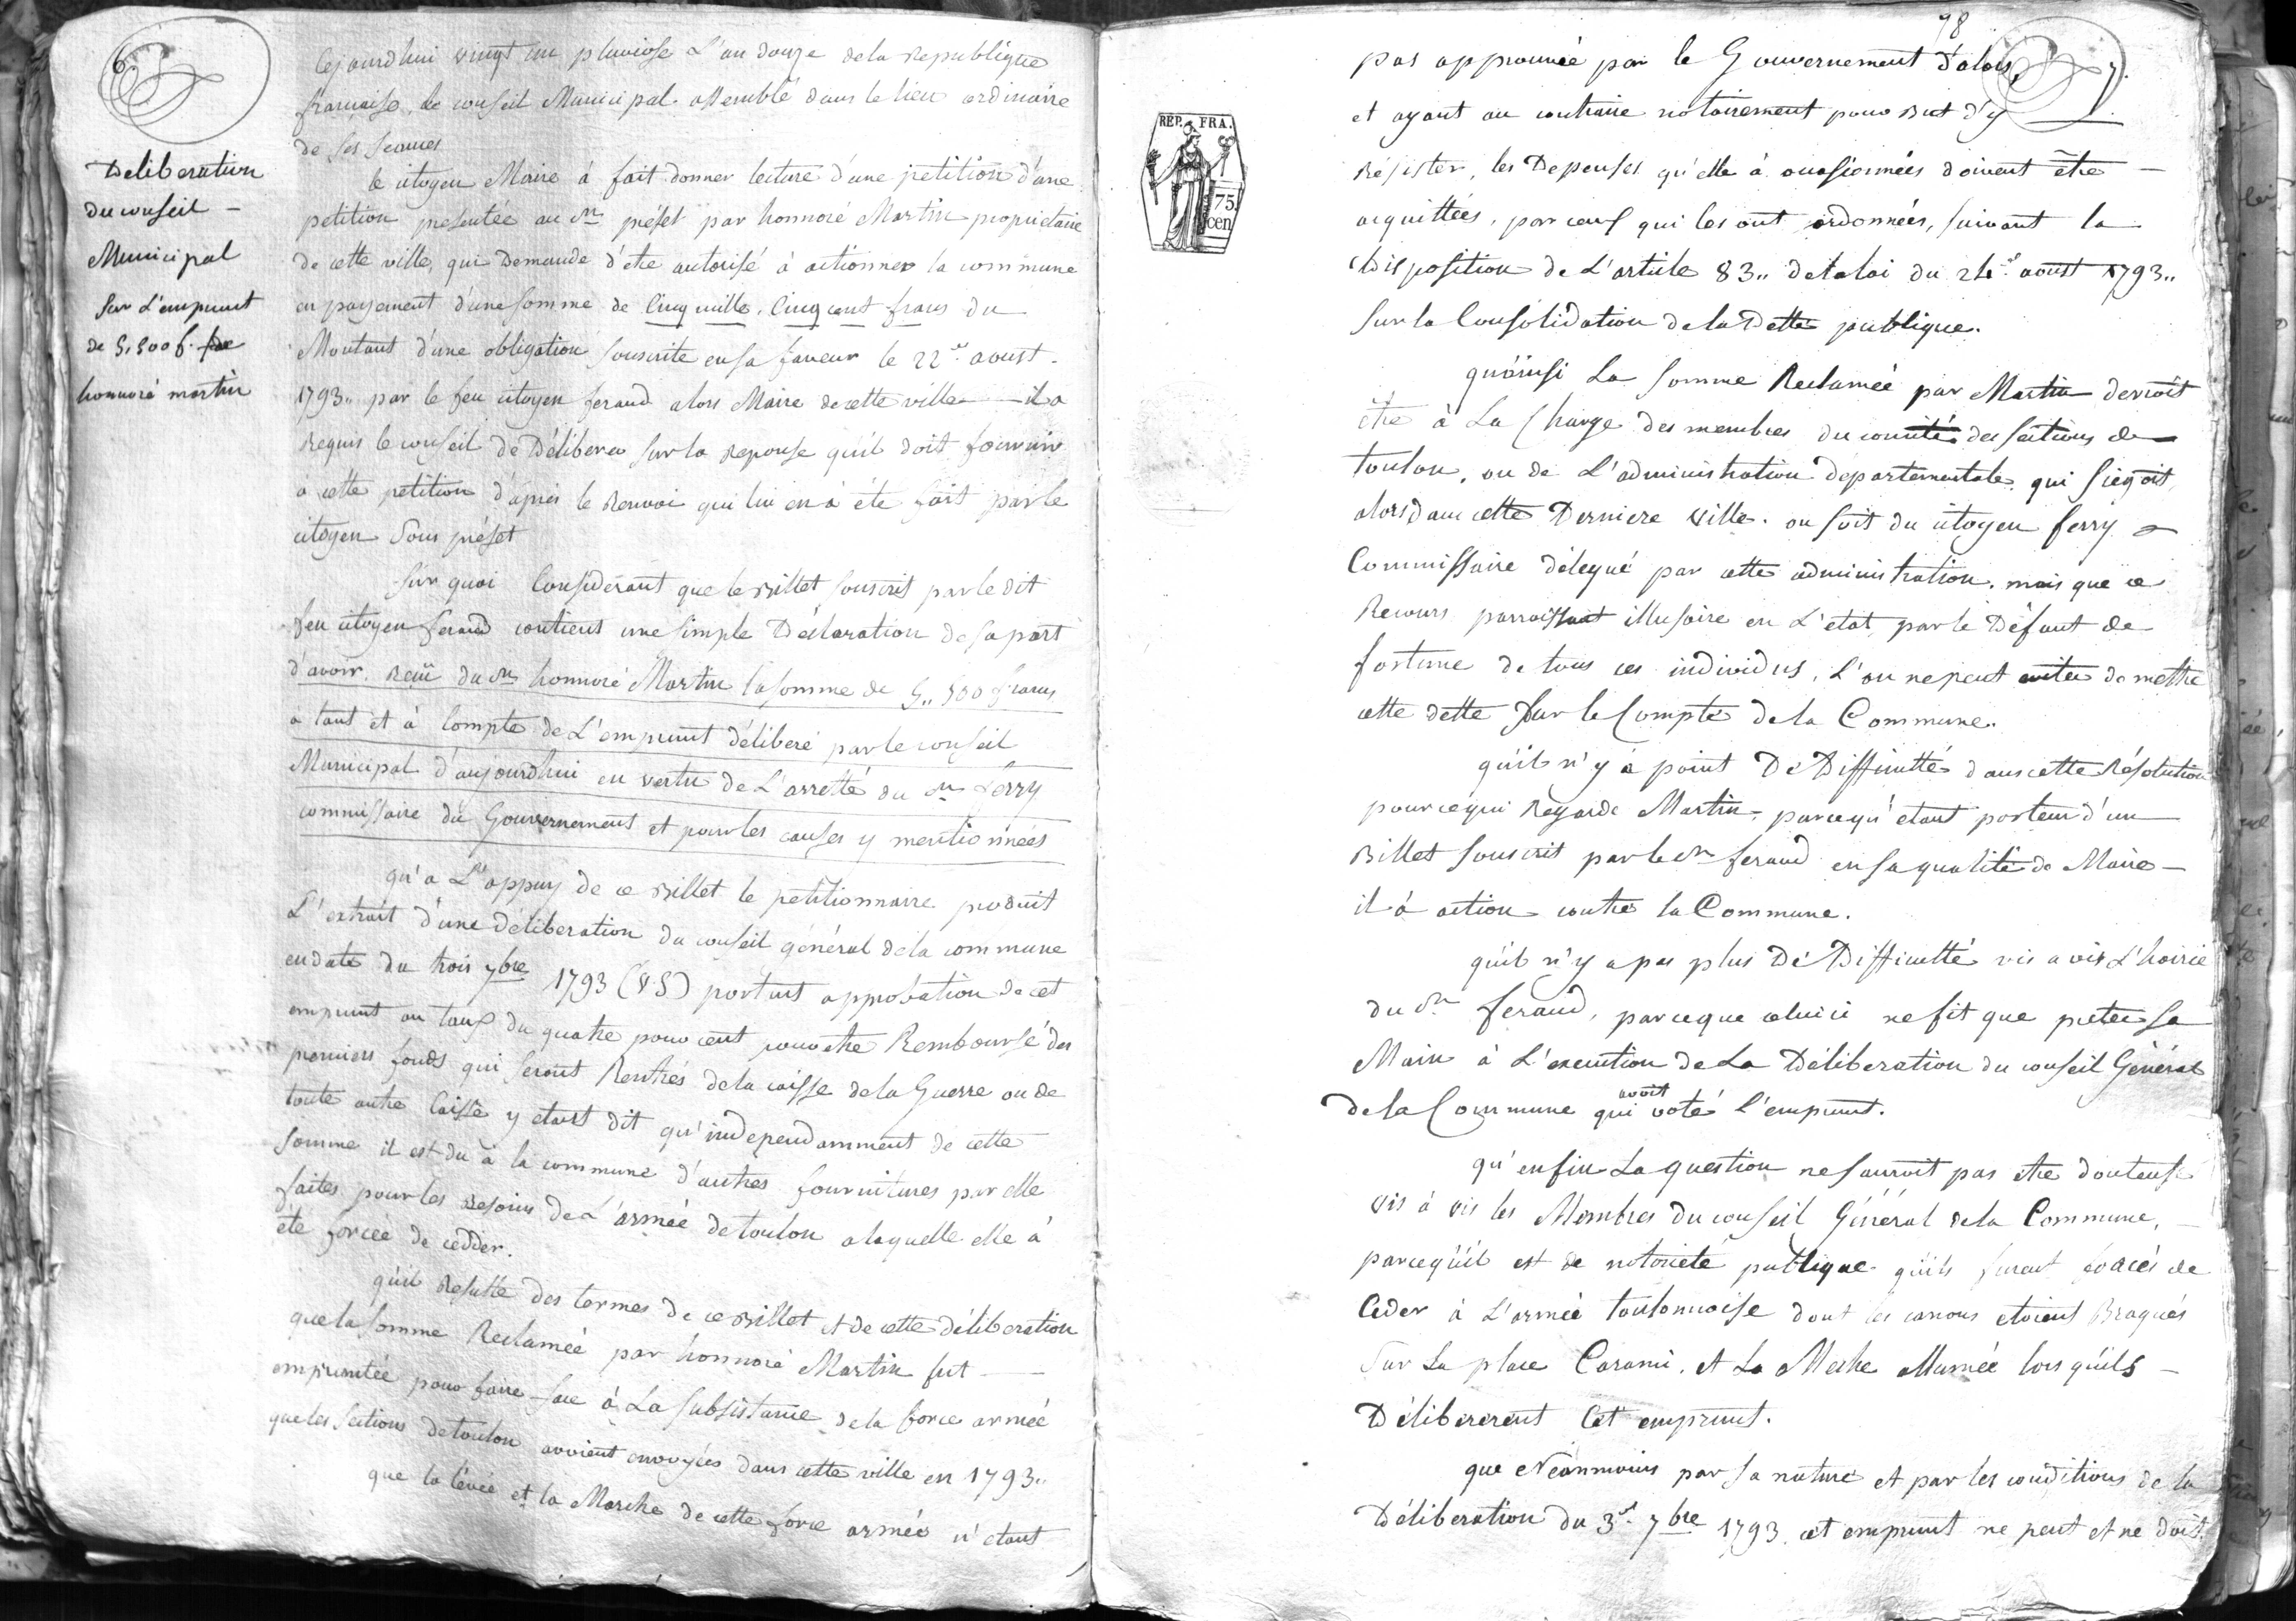 6
Deliberation
du conseil -
Municipal
sur L'emprunt
de 5,500 f. de
honnoré martin
Cejourdhui vingt un pluviose L'an douze de la Republique
francaise, le conseil Municipal assemblé dans le lieu ordinaire
de ses seances
le citoyen Maire à fait donner lecture d'une petition d'une
petition presentée au Sr. préfet par honnoré Martin proprietaire
de cette ville, qui Demande d'etre autorisé à actionner la commune
en payement d'une somme de Cinq mille, Cinq cent francs du
Montant d'une obligation souscrite en sa faveur le 22 aoust -
1793,, par le feu citoyen feraud alors Maire de cette ville — il a
Requis le conseil de Déliberer sur la Reponse qu'il doit fournir
a cette petition d'après le Renvoi qui lui en à été fait par le
citoyen Sous préfet
Sur quoi Considérant que le Billet souscrit par le dit
feu citoyen feraud contient une simple Déclaration de sa part
d'avoir Reçu du Sr. honnoré Martin la somme de 5,, 500 francs
à tant et à Compte de L'emprunt déliberé par le conseil
Municipal d'aujourdhui en vertu de L'arretté du Sr. ferry
commissaire du Gouvernement et pour les causes y mentionnées
qu'a L'appuy de ce Billet le petitionnaire produit
L'extrait d'une déliberation du conseil général de la commune
en date du trois 7bre 1793 (V.S) portant approbation de cet
emprunt au taux du quatre pour cent pour etre Remboursé des
premiers fonds qui seront Rentrés de la caisse de la Guerre ou de
toute autre Caisse y etant dit qu'independamment de cette
somme il est du à la commune d'autres fournitures par elle
faites pour les Besoins de L'armée de toulon a laquelle elle à
été forcée de cedder.
qu'il Resulte des termes de ce Billet et de cette déliberation
que la somme Reclamée par honnoré Martin fut —
empruntée pour faire face à La subsistance de la force armée
que les sections de toulon avoient envoyées dans cette ville en 1793,,
que la levée et la Marche de cette force armée n'etant
98
7.
pas approuvée par le Gouvernement d'alors,
et ayant au contraire notoirement pour But d'y
Résister, les Depenses qu'elle à occasionnées doivent être —
acquittées, par ceux qui les ont ordonnées, suivant la
disposition de L'article 83,, de la loi du 24 aoust 1793,,
sur la Consolidation de la Dette publique.
REP. FRA.
75.
cen
qu'ainsi La somme Reclamée par Martin devroit
être à La Charge des membres du comité des sections de
toulon, ou de L'administration departementale qui siegoit
alors dans cette Derniere ville. ou soit du citoyen ferry
Commissaire délegué par cette administration. mais que ce
Recours parroissant illusoire en L'etat, par le Défaut de
fortune de tous ces individus, L'on ne peut eviter de mettre
cette dette Sur le Compte de la Commune.
qu'il n'y à point De Difficulté dans cette Résolution
pour ce qui Regarde Martin, parcequ'étant porteur d'un
Billet souscrit par le Sr. feraud en sa qualité de Maire —
il à action contre la Commune.
qu'il n'y a pas plus De Difficulté vis a vis L'hoirie
du Sr. feraud, parceque celui ci ne fit que preter sa
Main à L'execution de La Déliberation du conseil Général
de la Commune qui avoit voté l'emprunt.
qu'enfin La question ne sauroit pas etre douteuse
vis à vis les Membres du conseil Général de la Commune, —
parcequ'il est de notorieté publique qu'ils furent forcés de
Ceder à L'armée toulonnoise dont les canons etoient Braqués
Sur La place Carami, et La Meche allumée lors qu'ils —
Délibererent Cet emprunt.
que Neanmoins par sa nature et par les conditions de la
Déliberation du 3 7bre 1793, cet emprunt ne peut et ne doit